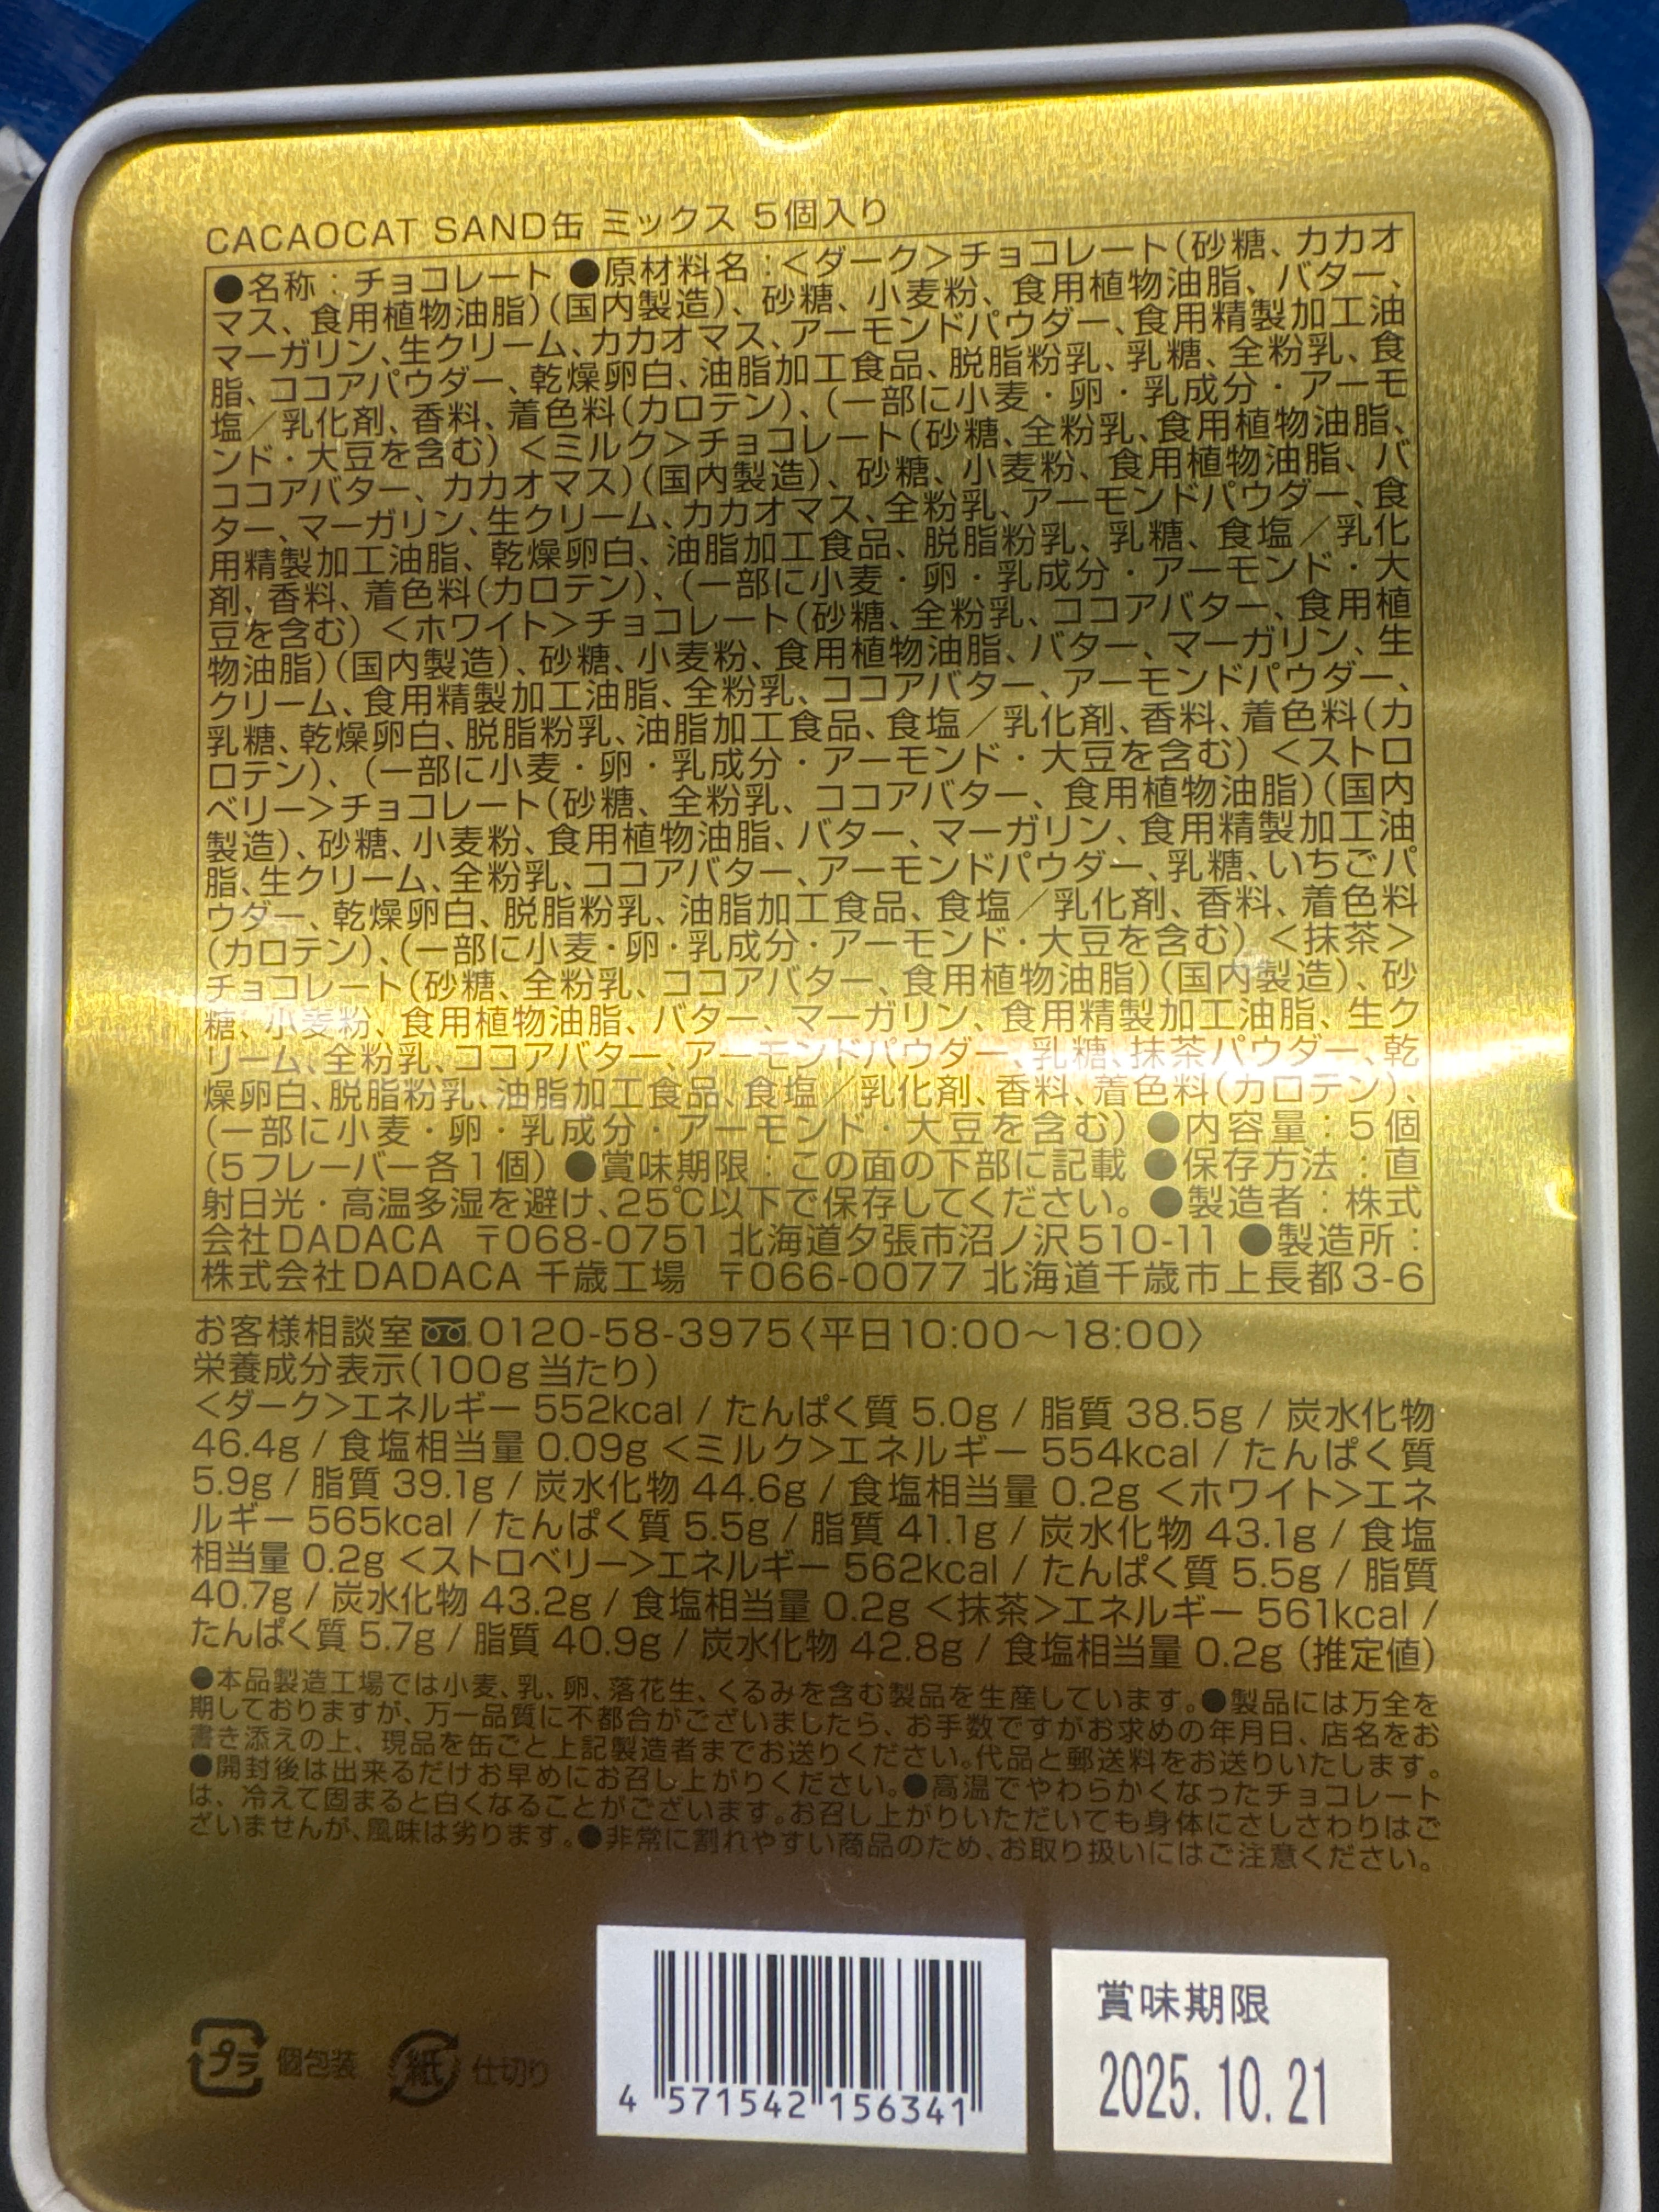 CACAOCAT SAND缶 ミックス 5個入り
●名称：チョコレート ●原材料名：＜ダーク＞チョコレート(砂糖、カカオ
マス、食用植物油脂)(国内製造)、砂糖、小麦粉、食用植物油脂、バター、
マーガリン、生クリーム、カカオマス、アーモンドパウダー、食用精製加工油
脂、ココアパウダー、乾燥卵白、油脂加工食品、脱脂粉乳、乳糖、全粉乳、食
塩／乳化剤、香料、着色料(カロテン)、(一部に小麦・卵・乳成分・アーモ
ンド・大豆を含む) ＜ミルク＞チョコレート(砂糖、全粉乳、食用植物油脂、
ココアバター、カカオマス)(国内製造)、砂糖、小麦粉、食用植物油脂、バ
ター、マーガリン、生クリーム、カカオマス、全粉乳、アーモンドパウダー、食
用精製加工油脂、乾燥卵白、油脂加工食品、脱脂粉乳、乳糖、食塩／乳化
剤、香料、着色料(カロテン)、(一部に小麦・卵・乳成分・アーモンド・大
豆を含む) ＜ホワイト＞チョコレート(砂糖、全粉乳、ココアバター、食用植
物油脂)(国内製造)、砂糖、小麦粉、食用植物油脂、バター、マーガリン、生
クリーム、食用精製加工油脂、全粉乳、ココアバター、アーモンドパウダー、
乳糖、乾燥卵白、脱脂粉乳、油脂加工食品、食塩／乳化剤、香料、着色料(カ
ロテン)、(一部に小麦・卵・乳成分・アーモンド・大豆を含む) ＜ストロ
ベリー＞チョコレート(砂糖、全粉乳、ココアバター、食用植物油脂)(国内
製造)、砂糖、小麦粉、食用植物油脂、バター、マーガリン、食用精製加工油
脂、生クリーム、全粉乳、ココアバター、アーモンドパウダー、乳糖、いちごパ
ウダー、乾燥卵白、脱脂粉乳、油脂加工食品、食塩／乳化剤、香料、着色料
(カロテン)、(一部に小麦・卵・乳成分・アーモンド・大豆を含む) ＜抹茶＞
チョコレート(砂糖、全粉乳、ココアバター、食用植物油脂)(国内製造)、砂
糖、小麦粉、食用植物油脂、バター、マーガリン、食用精製加工油脂、生ク
リーム、全粉乳、ココアバター、アーモンドパウダー、乳糖、抹茶パウダー、乾
燥卵白、脱脂粉乳、油脂加工食品、食塩／乳化剤、香料、着色料(カロテン)、
(一部に小麦・卵・乳成分・アーモンド・大豆を含む) ●内容量：5個
(5フレーバー各1個) ●賞味期限：この面の下部に記載 ●保存方法：直
射日光・高温多湿を避け、25℃以下で保存してください。 ●製造者：株式
会社DADACA 〒068-0751 北海道夕張市沼ノ沢510-11 ●製造所：
株式会社DADACA 千歳工場 〒066-0077 北海道千歳市上長都3-6
お客様相談室 0120-58-3975〈平日10:00〜18:00〉
栄養成分表示(100g当たり)
＜ダーク＞エネルギー 552kcal / たんぱく質 5.0g / 脂質 38.5g / 炭水化物
46.4g / 食塩相当量 0.09g ＜ミルク＞エネルギー 554kcal / たんぱく質
5.9g / 脂質 39.1g / 炭水化物 44.6g / 食塩相当量 0.2g ＜ホワイト＞エネ
ルギー 565kcal / たんぱく質 5.5g / 脂質 41.1g / 炭水化物 43.1g / 食塩
相当量 0.2g ＜ストロベリー＞エネルギー 562kcal / たんぱく質 5.5g / 脂質
40.7g / 炭水化物 43.2g / 食塩相当量 0.2g ＜抹茶＞エネルギー 561kcal /
たんぱく質 5.7g / 脂質 40.9g / 炭水化物 42.8g / 食塩相当量 0.2g (推定値)
●本品製造工場では小麦、乳、卵、落花生、くるみを含む製品を生産しています。●製品には万全を
期しておりますが、万一品質に不都合がございましたら、お手数ですがお求めの年月日、店名をお
書き添えの上、現品を缶ごと上記製造者までお送りください。代品と郵送料をお送りいたします。
●開封後は出来るだけお早めにお召し上がりください。●高温でやわらかくなったチョコレート
は、冷えて固まると白くなることがございます。お召し上がりいただいても身体にさしさわりはご
ざいませんが、風味は劣ります。●非常に割れやすい商品のため、お取り扱いにはご注意ください。
プラ 個包装 紙 仕切り
4 571542 156341
賞味期限
2025.10.21